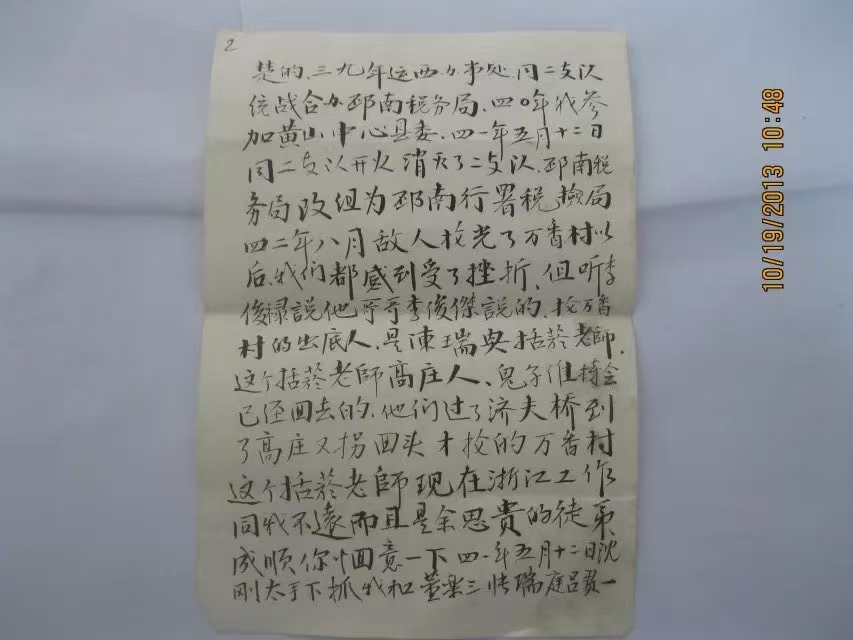 2
楚的、三九年运西办事处、同二支队
统战合办邳南税务局、四〇年我参
加黄山中心县委、四一年五月十二日
同二支队开火消灭了二支队、邳南税
务局改组为邳南行署税捡局
四二年八月敌人枚光了万香村以
后、我们都感到受了挫折、但听李
俊禄説他哥哥李俊傑説的、枚万香
村的出底人、是陳瑞典括菸老師、
这个括菸老師高庄人、鬼子维持会
已还回去的、他们过了济夫桥到
了高庄又拐回头才枚的万香村
这个括菸老師现在浙江工作
同我不遠而且是余思贵的徒弟
成顺你们回意一下四一年五月十二日沈
刚太手下抓我和董樂三 瑞庭吕贵一
10/19/2013 10:48